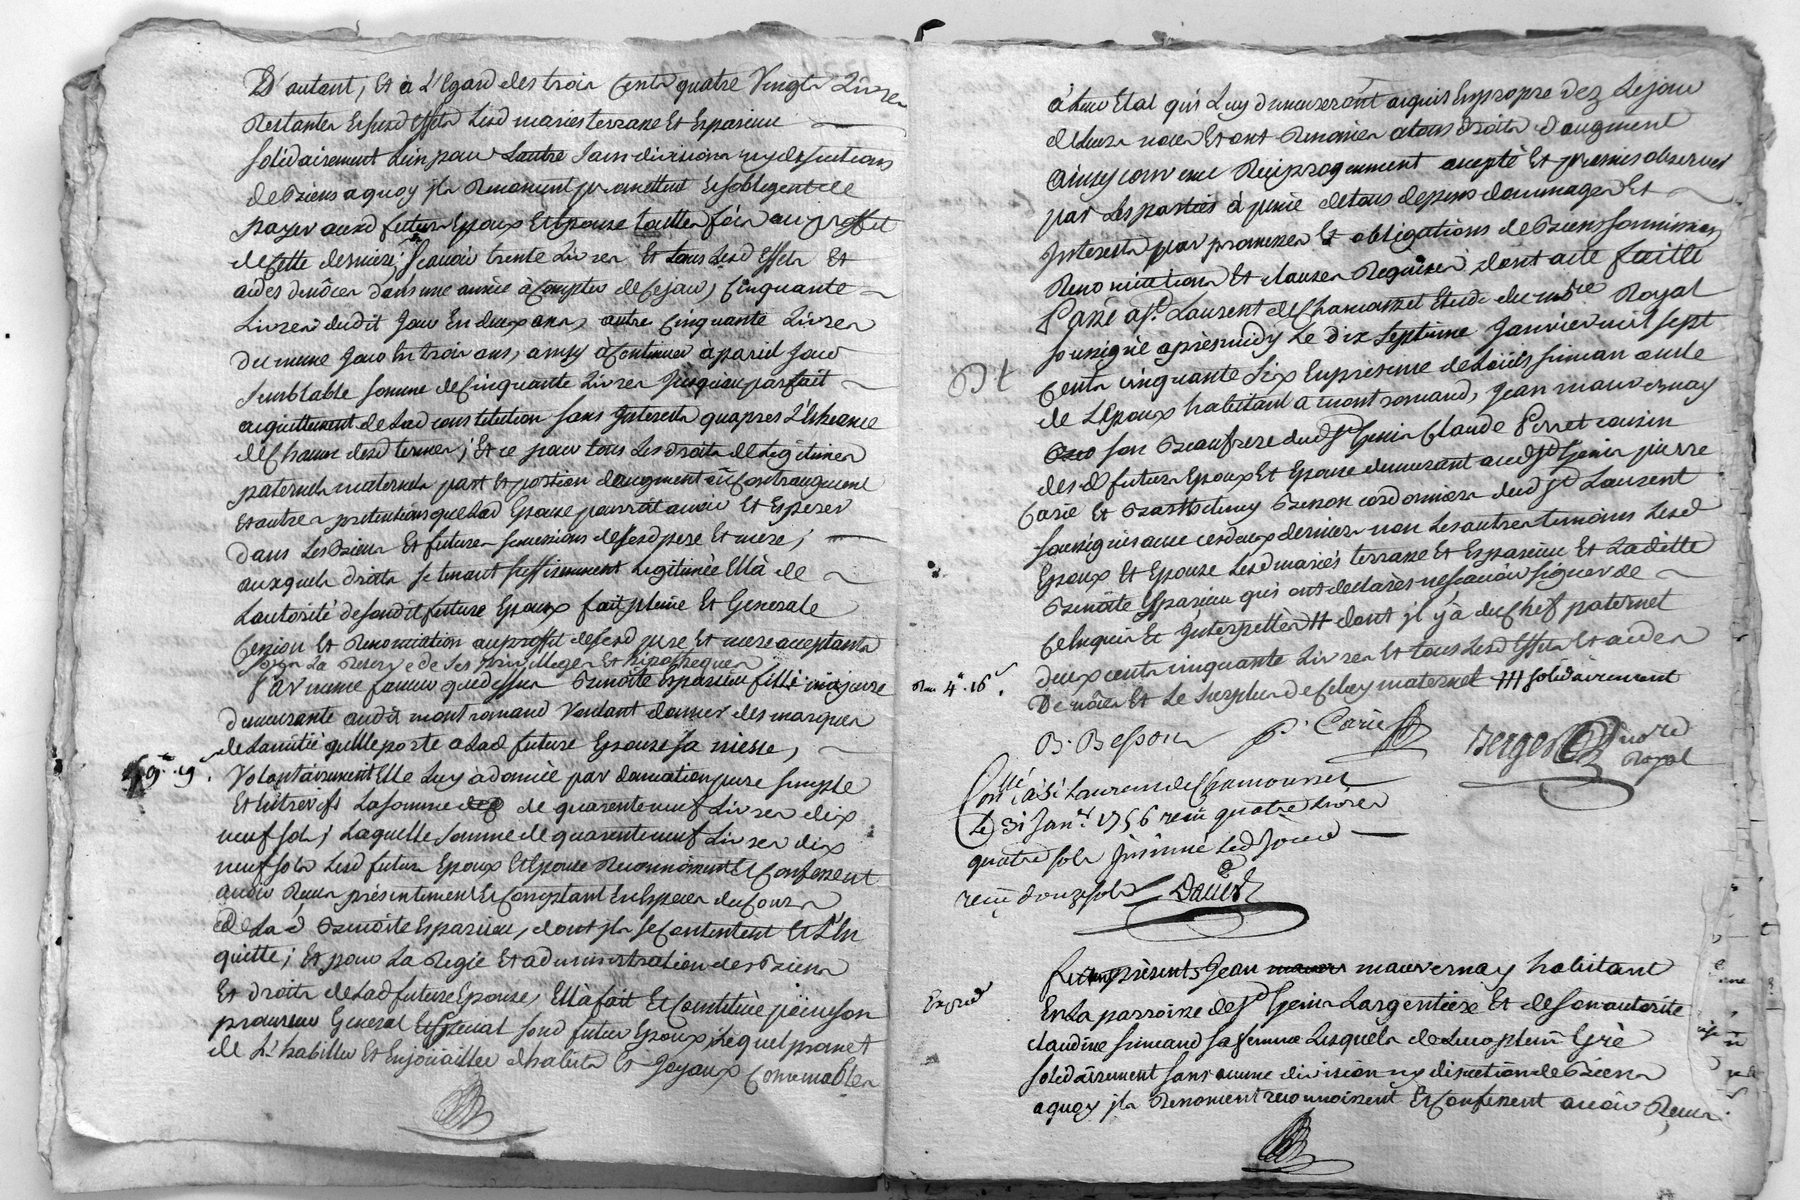 D'autant, Et à L'Egard des trois Cents quatre Vingts Livres
Restantes Et susd effets Lesd maries terrasse Et Esparsieu
solidairement Lun pour Lautre sans division ny discution
de Biens a quoy ils Renoncent promettent Et soblegent de
payer ausd futurs Epoux Et Epouse touttes fois au proffit
de Cette derniere, Scavoir trente Livres Et tous Lesd Effets Et
aides de nôces dans une année à Compter de Ce jour, Cinquante
Livres dudit Jour En deux ans, autre Cinquante Livres
du meme Jour En trois ans, ainsy à Continuer à pareil Jour
semblable somme de Cinquante Livres Jusqu'au parfait
acquittement de Lad constitution sans Interests qu'apres L'Echeance
de Chacun desd termes; Et ce pour tous Les droits de Legitimes
paternels maternels part Et portion d'augment ou Contraugment
Et autres pretentions que Lad Epouse pourroit avoir Et Esperer
dans Les Biens Et futures successions de sesd pere Et mere;
auxquels droits se tenant suffisemment Legitimée Ella de
Lautorité de sondit futur Epoux fait pleine Et Generale
Cession Et Renonciation au proffit de sesd pere Et mere acceptants
sous La Reserve de ses privilleges Et hipotheques
Par meme faveur que dessus Benoite Esparsieu fille majeure
demeurante audit montromand Voulant donner des marques
de Lamitié qu'elle porte a Lad future Epouse sa niesse,
Volontairement Elle Luy à donnée par donnation pure simple
Et Entrevifs La somme de quarente neuf Livres dix
neuf sols; Laquelle somme de quarente neuf Livres dix
neuf sols Lesd futurs Epoux Et Epouse Reconnoissent Et Confessent
avoir Receu présentement Et Comptant En Especes du Cours
De Lad Benoite Esparsieu, dont ils se Contentent Et L'En
quitte; Et pour La Regie Et administration des Biens
Et droits de Lad future Epouse, Ella fait Et Constitüe pour son
procureur General Et special sond futur Epoux, Lequel promet
de L'habiller Et Enjoüailler d'habits Et Joyaux Convenables
à Leur Etat qui Luy demeureront acquis En propre dez Le jour
de Leurs noces Et ont Renoncer a tous droits d'augment
ainsy convenu Reciproquement accepté Et promis observer
par Les parties à peine de tous depens dommages Et
Interests par promesses Et obligations de Biens soumissions
Renonciations Et clauses Requises, dont acte faitte
Passé à St Laurent de Chamousset Etude du nore Royal
soussigné après midy Le dix septieme Janvier mil sept
Cents cinquante Six En présence de Loüis simean oncle
de LEpoux habitant a montromand, Jean mauvernay
son Beaufrere dud St Genis Claude Perret cousin
desd futurs Epoux Et Epouse demeurant aud St Genis pierre
Carie Et Barthelemy Besson cordonniers dud St Laurent
soussignés avec ces deux derniers non Les autres temoins Lesd
Epoux Et Epouse Lesd mariés terrasse Et Esparsieu Et Laditte
Benoite Esparsieu qui ont declarés ne scavoir signer de
Ce Enquis Et Interpellés H dont il y a du Chef paternel
deux cents cinquante Livres Et tous Lesd Effets Et aides
De nôces Et Le surplus de Celuy maternel HH solidairement
B. Besson P. Carie Berger nore
Royal
Contllé à St Laurent de Chamousset
Le 31 Janer 1756 recu quatre Livres
quatre sols Jnsinué Led Jour
recu douze sols
Expedié
Furent présents Jean mauvernay habitant
En La parroisse de St Genis Largentiere Et de son autorité
claudine simeand sa femme Lesquels de Leur plein Gré
solidairement sans aucune division ny discution de Biens
a quoy ils Renoncent reconnoissent Et Confessent avoir Receu